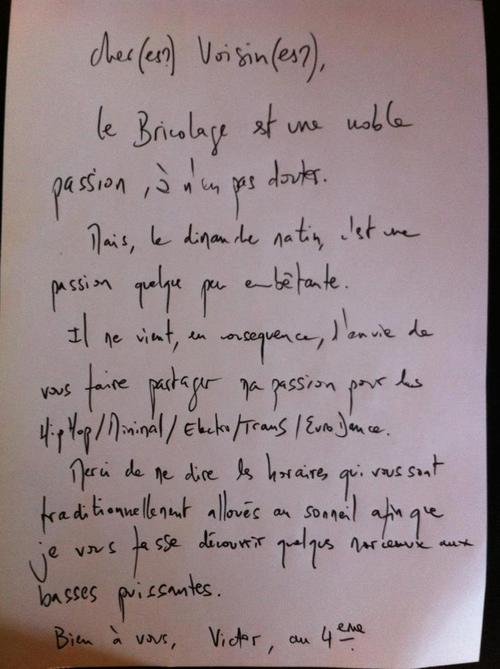 cher(es?) Voisin(es?),
le Bricolage est une noble
passion, à n'en pas douter.
Mais, le dimanche matin, c'est une
passion quelque peu embêtante.
Il me vient, en conséquence, l'envie de
vous faire partager ma passion pour les
HipHop/Minimal/Electro/Trans/EuroDance.
Merci de me dire les horaires qui vous sont
traditionnellement alloués au sommeil afin que
je vous fasse découvrir quelques morceaux aux
basses puissantes.
Bien à vous, Victor, au 4ème